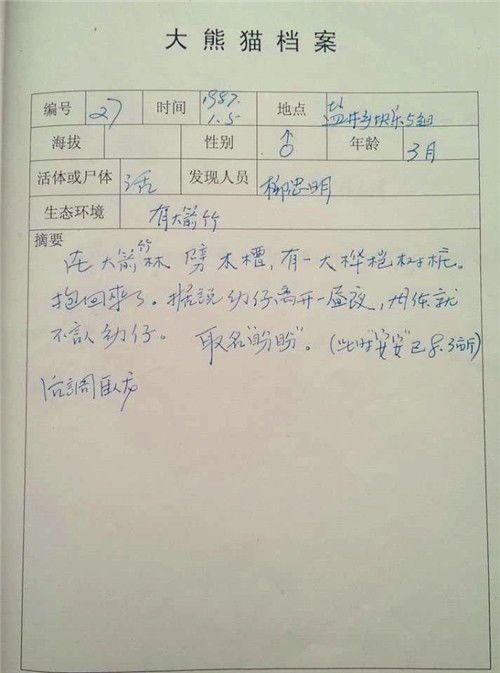 大熊猫档案
编号 27 时间 1987.1.5 地点 盐井乡快乐5组
海拔 性别 ♂ 年龄 3月
活体或尸体 活 发现人员 柳思明
生态环境 有大箭竹
摘要
在大箭竹林劈木槽,有一大桦桤树桩。
抱回来了。据說幼仔离开一昼夜,母体就
不认幼仔。取名"盼盼"。(此时"安安"已 3市斤)
后調卧龙